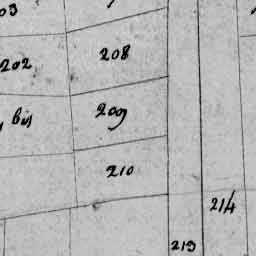 03
202
208
bis
209
210
214
213